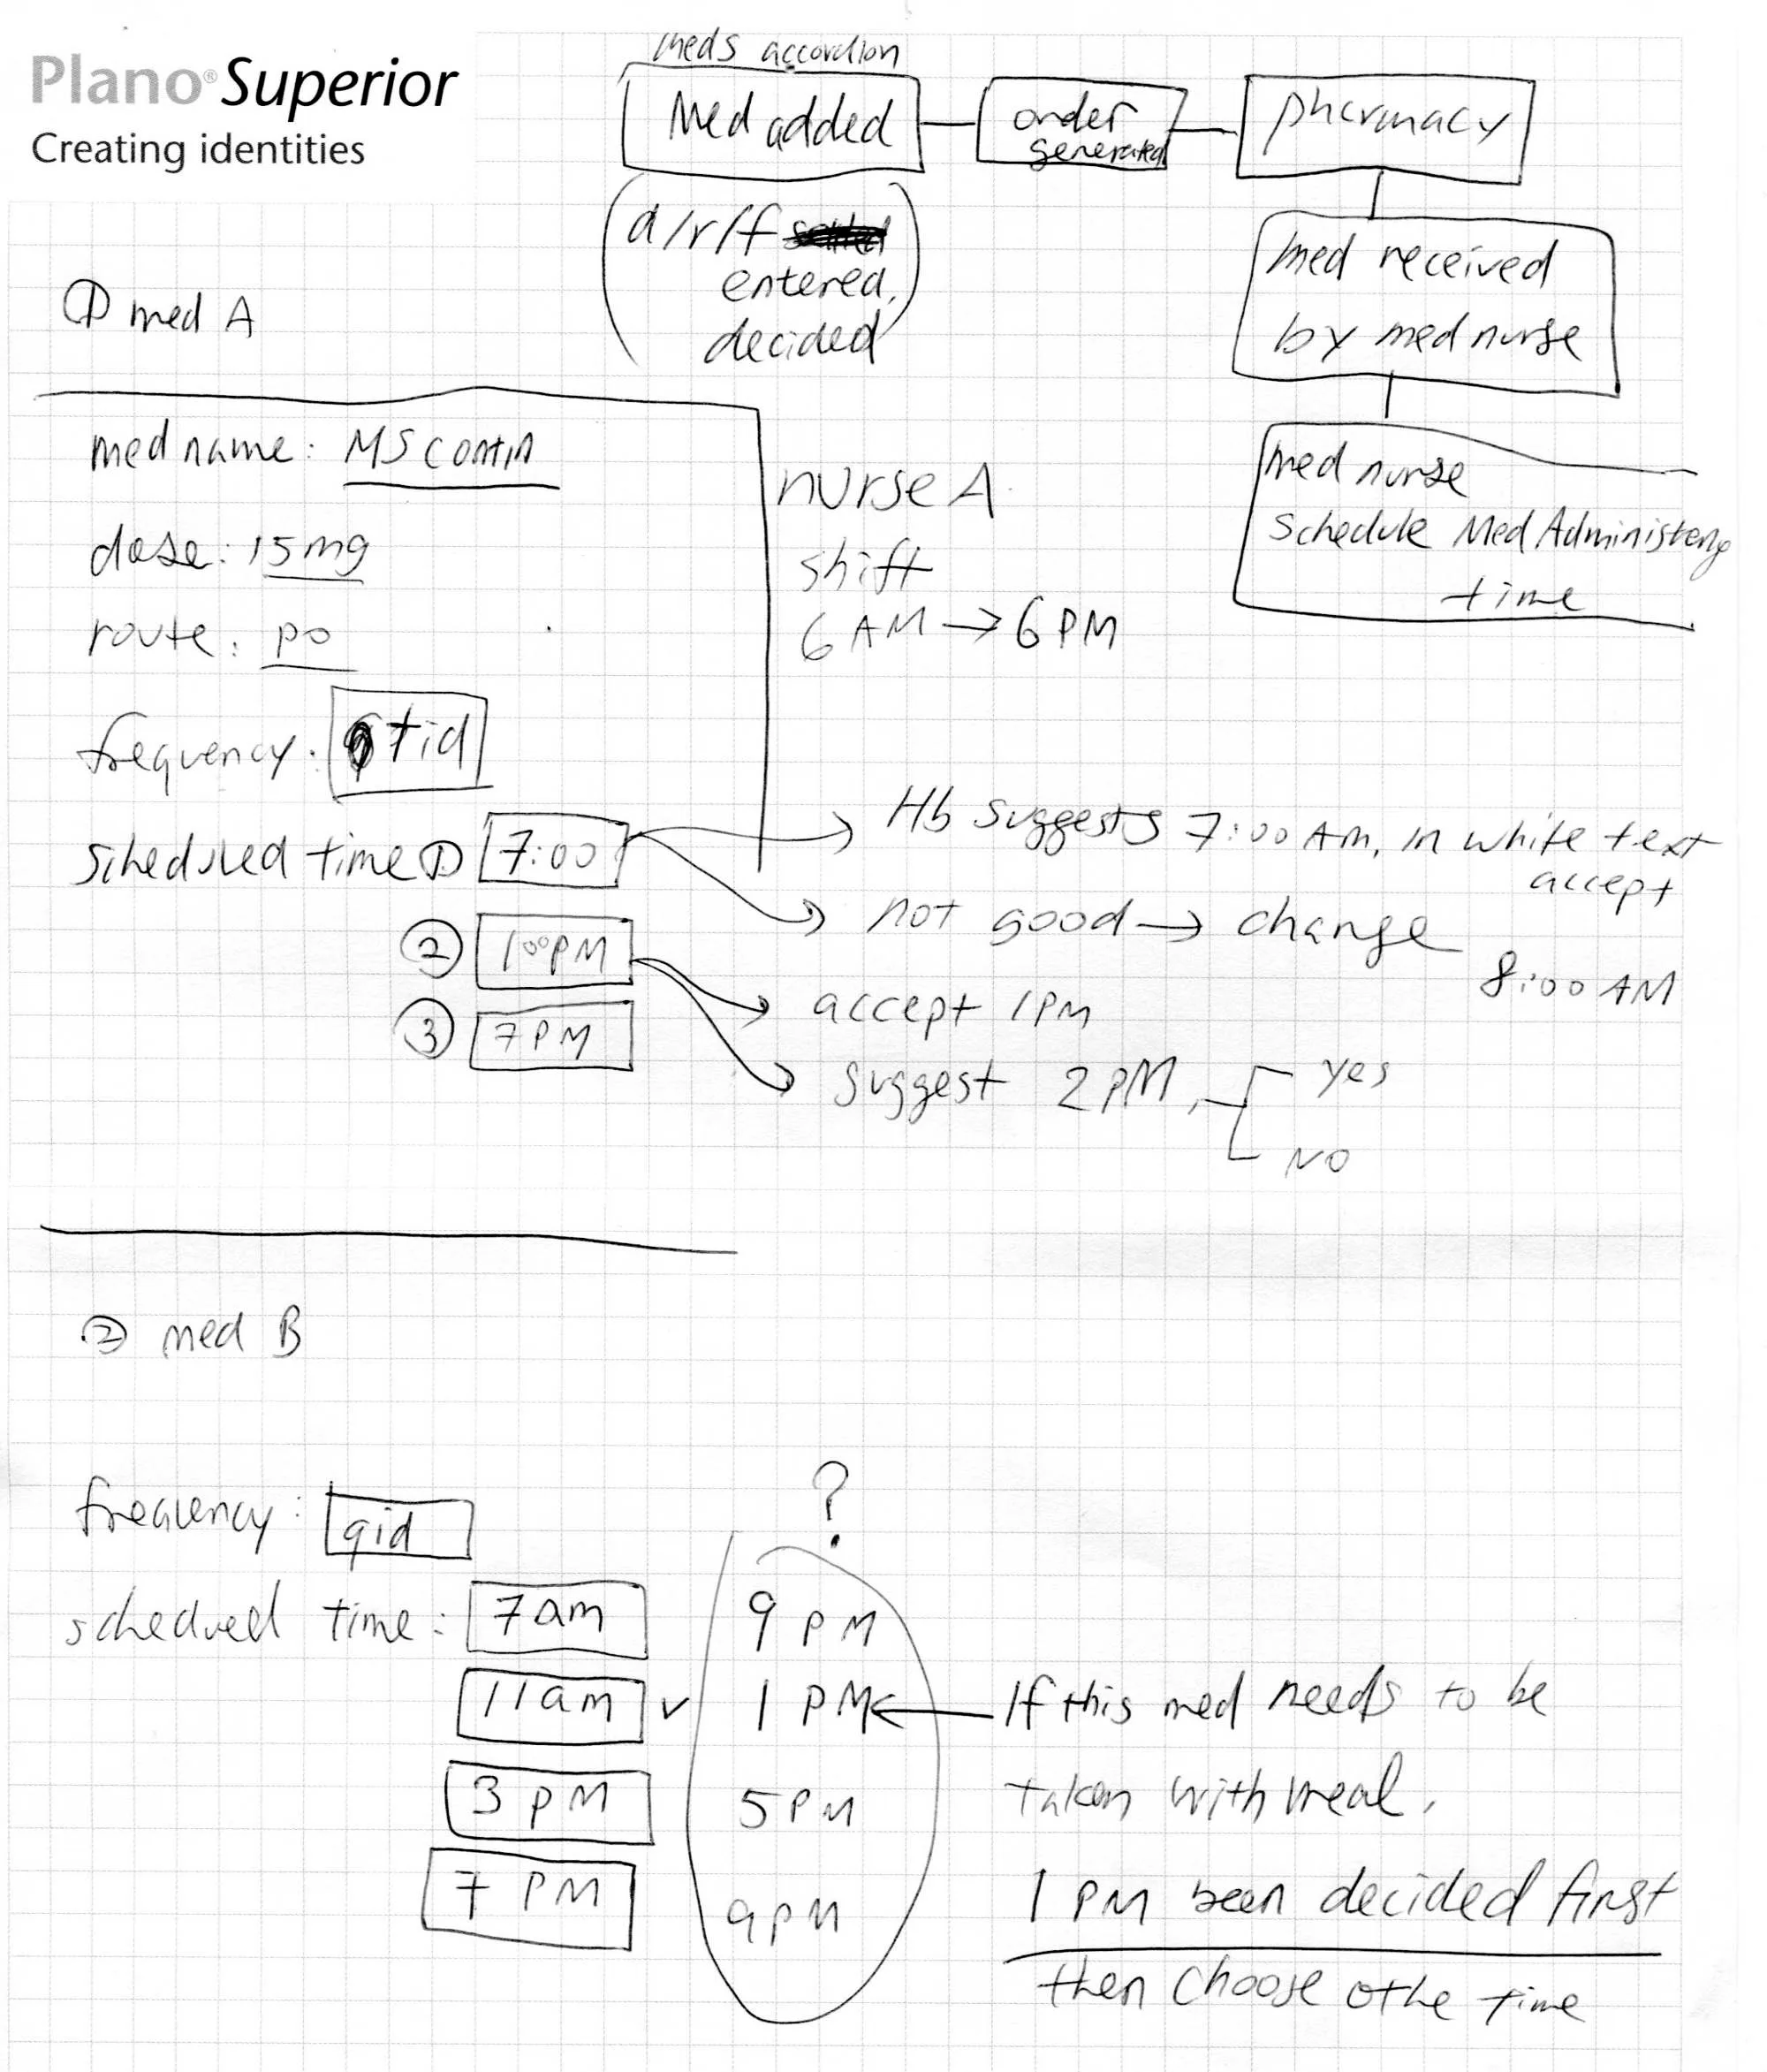 Plano® Superior
Creating identities
meds accordion
Med added
order
generated
pharmacy
(d/r/f
entered,
decided)
med received
by med nurse
med nurse
schedule Med Administering
time
① med A
med name: MS contin
dose: 15mg
route: po
frequency: tid
scheduled time ① 7:00
② 1:00 PM
③ 7 PM
nurse A
shift
6 AM → 6 PM
Hb suggests 7:00 AM, in white text
accept
not good → change
8:00 AM
accept 1PM
suggest 2 PM,
yes
NO
② med B
frequency: qid
scheduled time: 7am
11am ✓
3 pm
7 PM
?
9 PM
1 PM
5 PM
9 PM
← If this med needs to be
taken with meal,
1 PM been decided first
then choose othe time